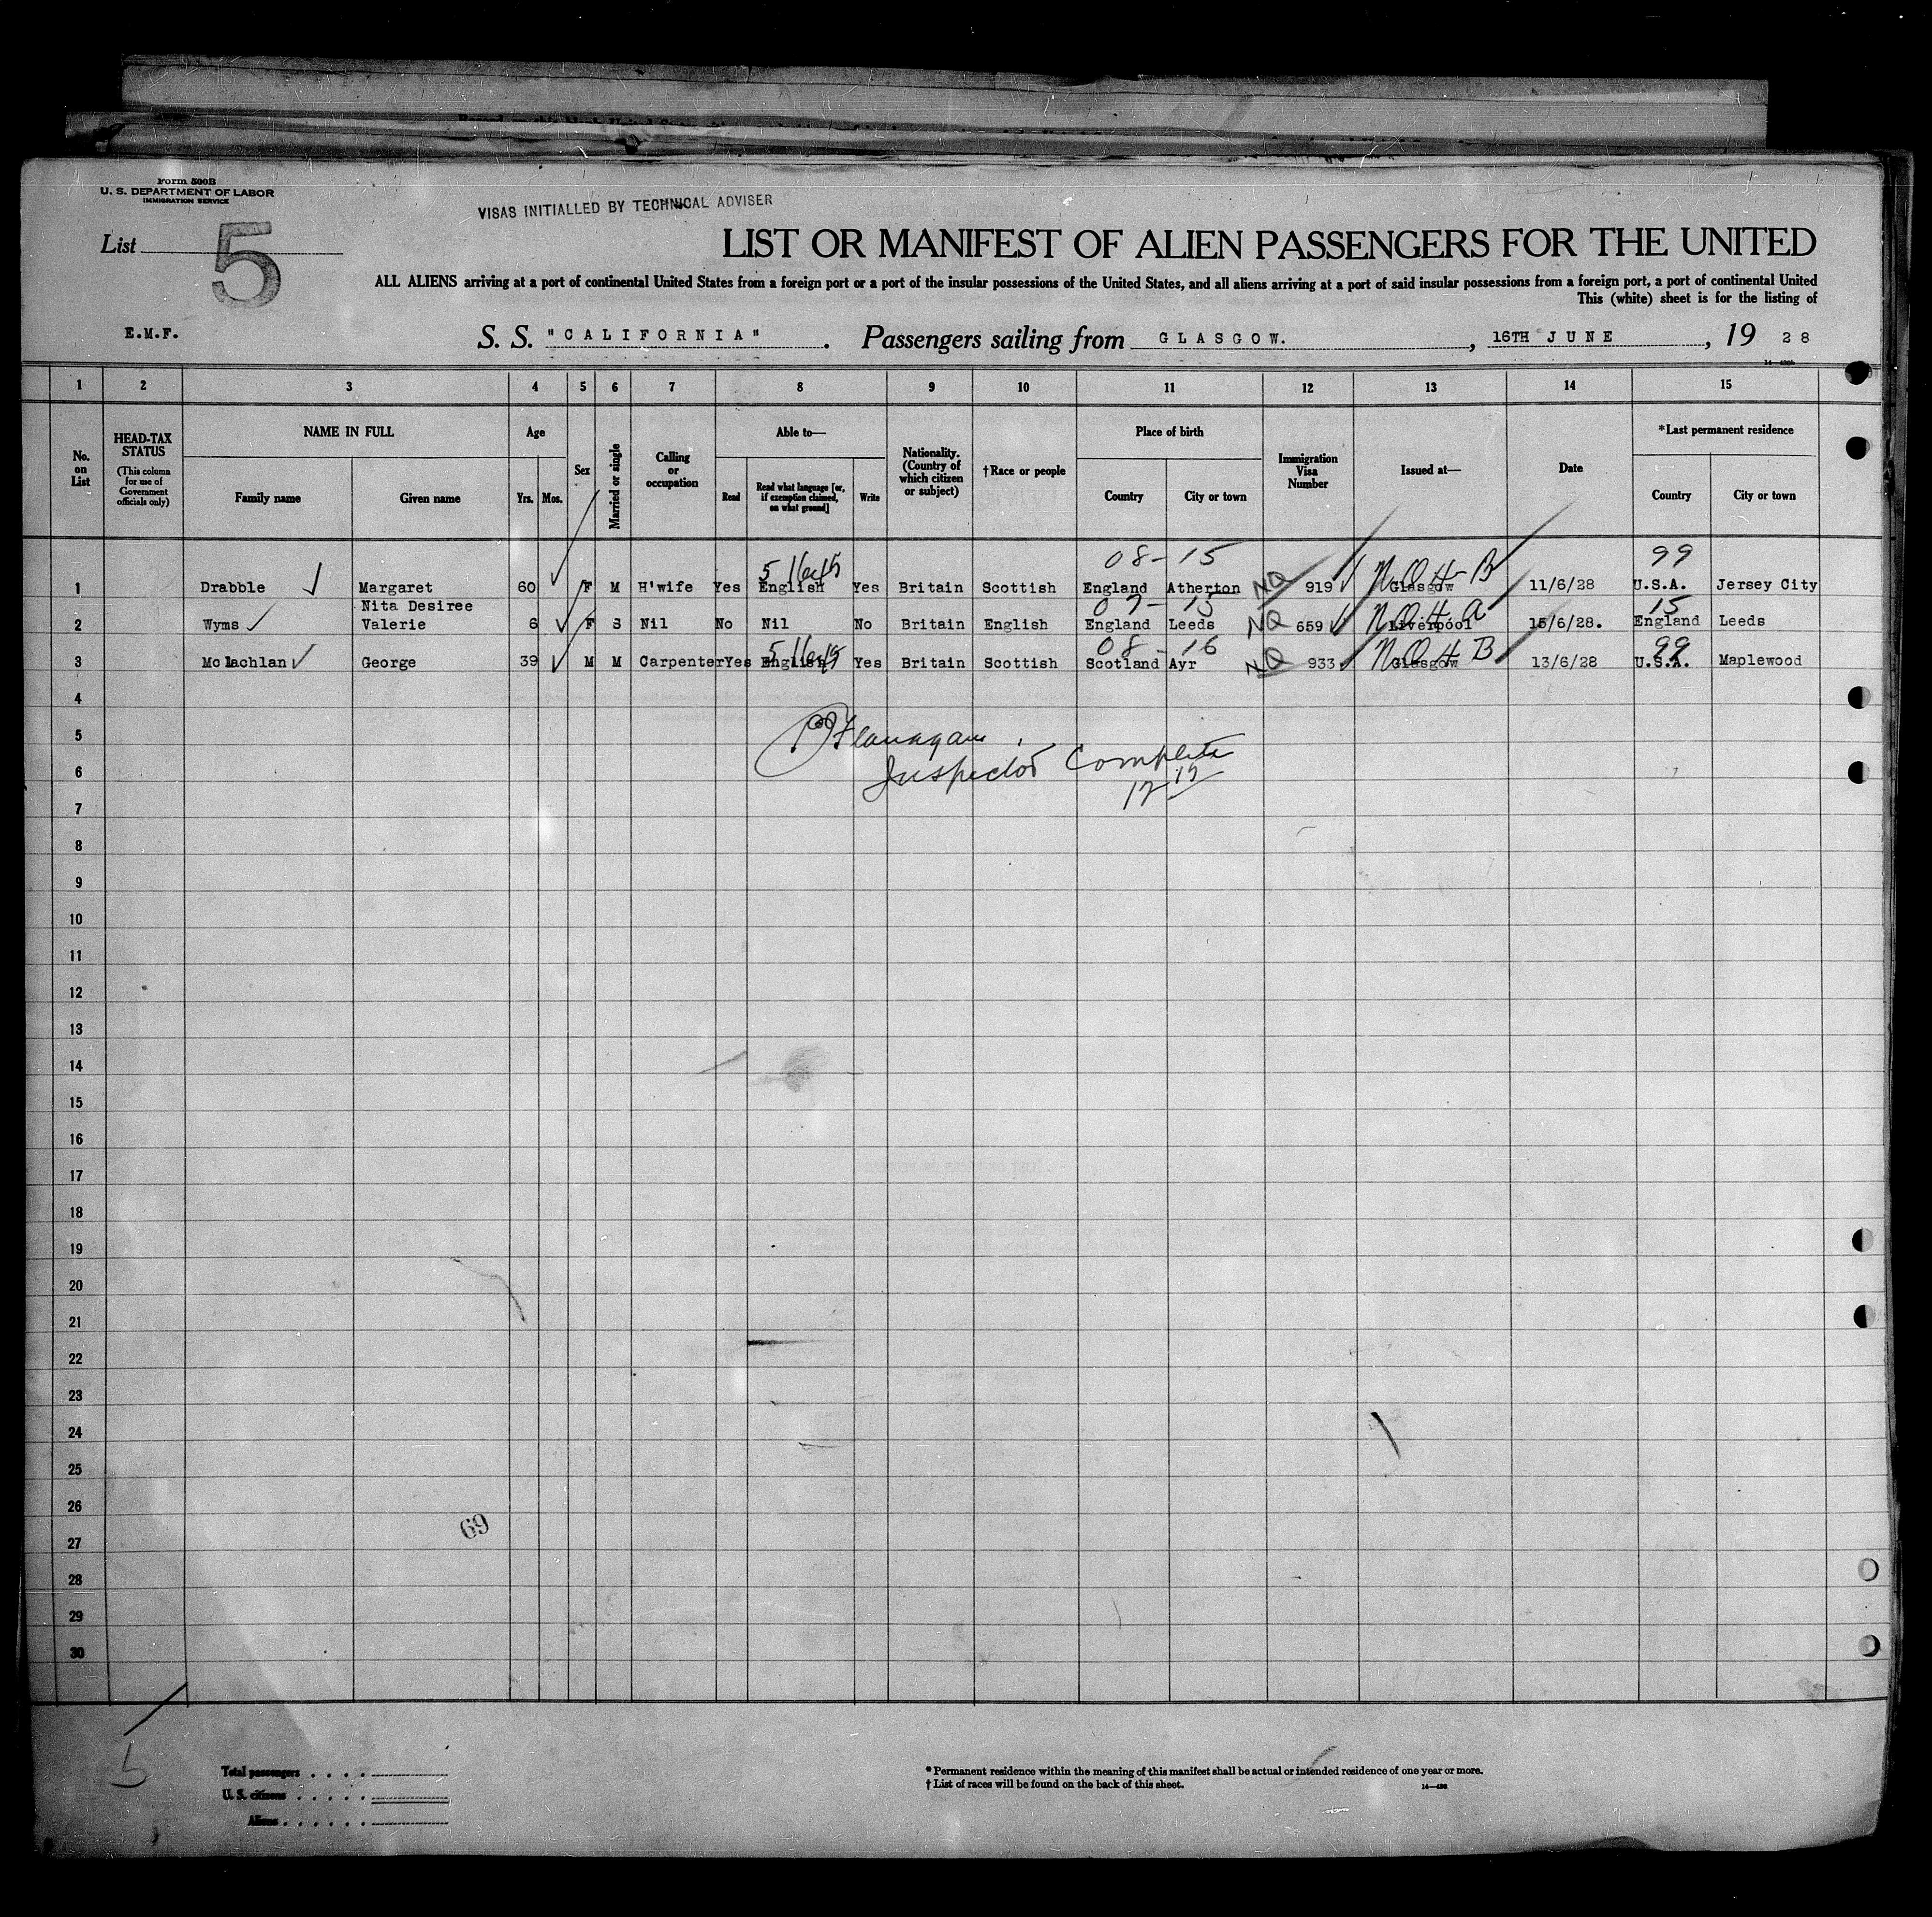 Form 500B
U. S. DEPARTMENT OF LABOR
IMMIGRATION SERVICE
VISAS INITIALLED BY TECHNICAL ADVISER
List 5
LIST OR MANIFEST OF ALIEN PASSENGERS FOR THE UNITED
ALL ALIENS arriving at a port of continental United States from a foreign port or a port of the insular possessions of the United States, and all aliens arriving at a port of said insular possessions from a foreign port, a port of continental United
This (white) sheet is for the listing of
E.M.F. S. S. "CALIFORNIA". Passengers sailing from GLASGOW. , 16TH JUNE , 19 28
1 2 3 4 5 6 7 8 9 10 11 12 13 14 15
No. on List
HEAD-TAX STATUS (This column for use of Government officials only)
NAME IN FULL
Family name Given name
Age
Yrs. Mos.
Sex
Married or single
Calling or occupation
Able to—
Read Read what language [or, if exemption claimed, on what ground] Write
Nationality. (Country of which citizen or subject)
†Race or people
Place of birth
Country City or town
Immigration Visa Number
Issued at—
Date
*Last permanent residence
Country City or town
08-15 99
1 Drabble Margaret 60 F M H'wife Yes English Yes Britain Scottish England Atherton NQ 919 Glasgow NQ4-B 11/6/28 U.S.A. Jersey City
Nita Desiree 07-15 15
2 Wyms Valerie 6 F S Nil No Nil No Britain English England Leeds NQ 659 Liverpool NQ4a 15/6/28. England Leeds
08-16 99
3 Mc lachlan George 39 M M Carpenter Yes English Yes Britain Scottish Scotland Ayr NQ 933 Glasgow NQ4B 13/6/28 U.S.A. Maplewood
4
5 Flanagan
6 Inspector Complete
7
8
9
10
11
12
13
14
15
16
17
18
19
20
21
22
23
24
25
26
69
27
28
29
30
5
Total passengers . . . .
U. S. citizens . . . . .
Aliens . . . . . .
* Permanent residence within the meaning of this manifest shall be actual or intended residence of one year or more.
† List of races will be found on the back of this sheet.